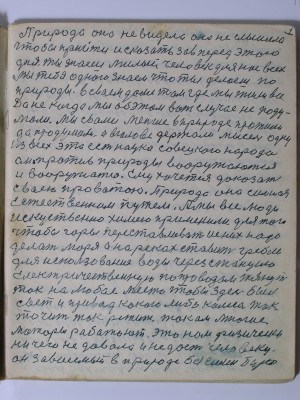 Природа она не видела она не слышала
чтобы прийти и сказать за в перед этого
дня ты знаеш милый человек для нас всех
мы тебя одного знаем что ты делаеш по
природы. в своем доме там где мы жили
Да не когда мы об этом вот случае не поду-
мали. Мы сами меньше в природе
да продумали. а в голове держали мысль одну
из всех это есть наука советского народа
он против природы вооружается
и вооружил. Ему хочется доказат
своею правотою. Природа она сильная
естественным путем. А мы все люди
искуственно химию применили для того
чтобы горы переставлят, и ими надо
делат моря а на реках ставит гребли
для использования воды через станцию
електричественную по проводам тянут
ток на любое место чтобы здес был
свет и привод какого либо колеса. ток
точит ток режит током многие
моторы работают. Это нам физически
ничего не давала и не даст человеку.
он зависимый в природе